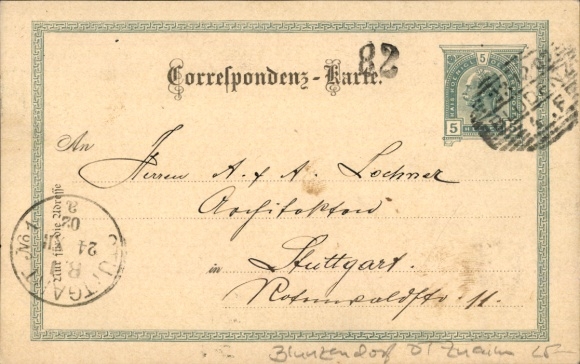 82
Correspondenz-Karte.
5
5
An
Herren A. & A. Lochner
Architekten
in Stuttgart.
Rotenwaldstr. 11.
Nur für die Adresse
STUTTGART No. 1
24
02